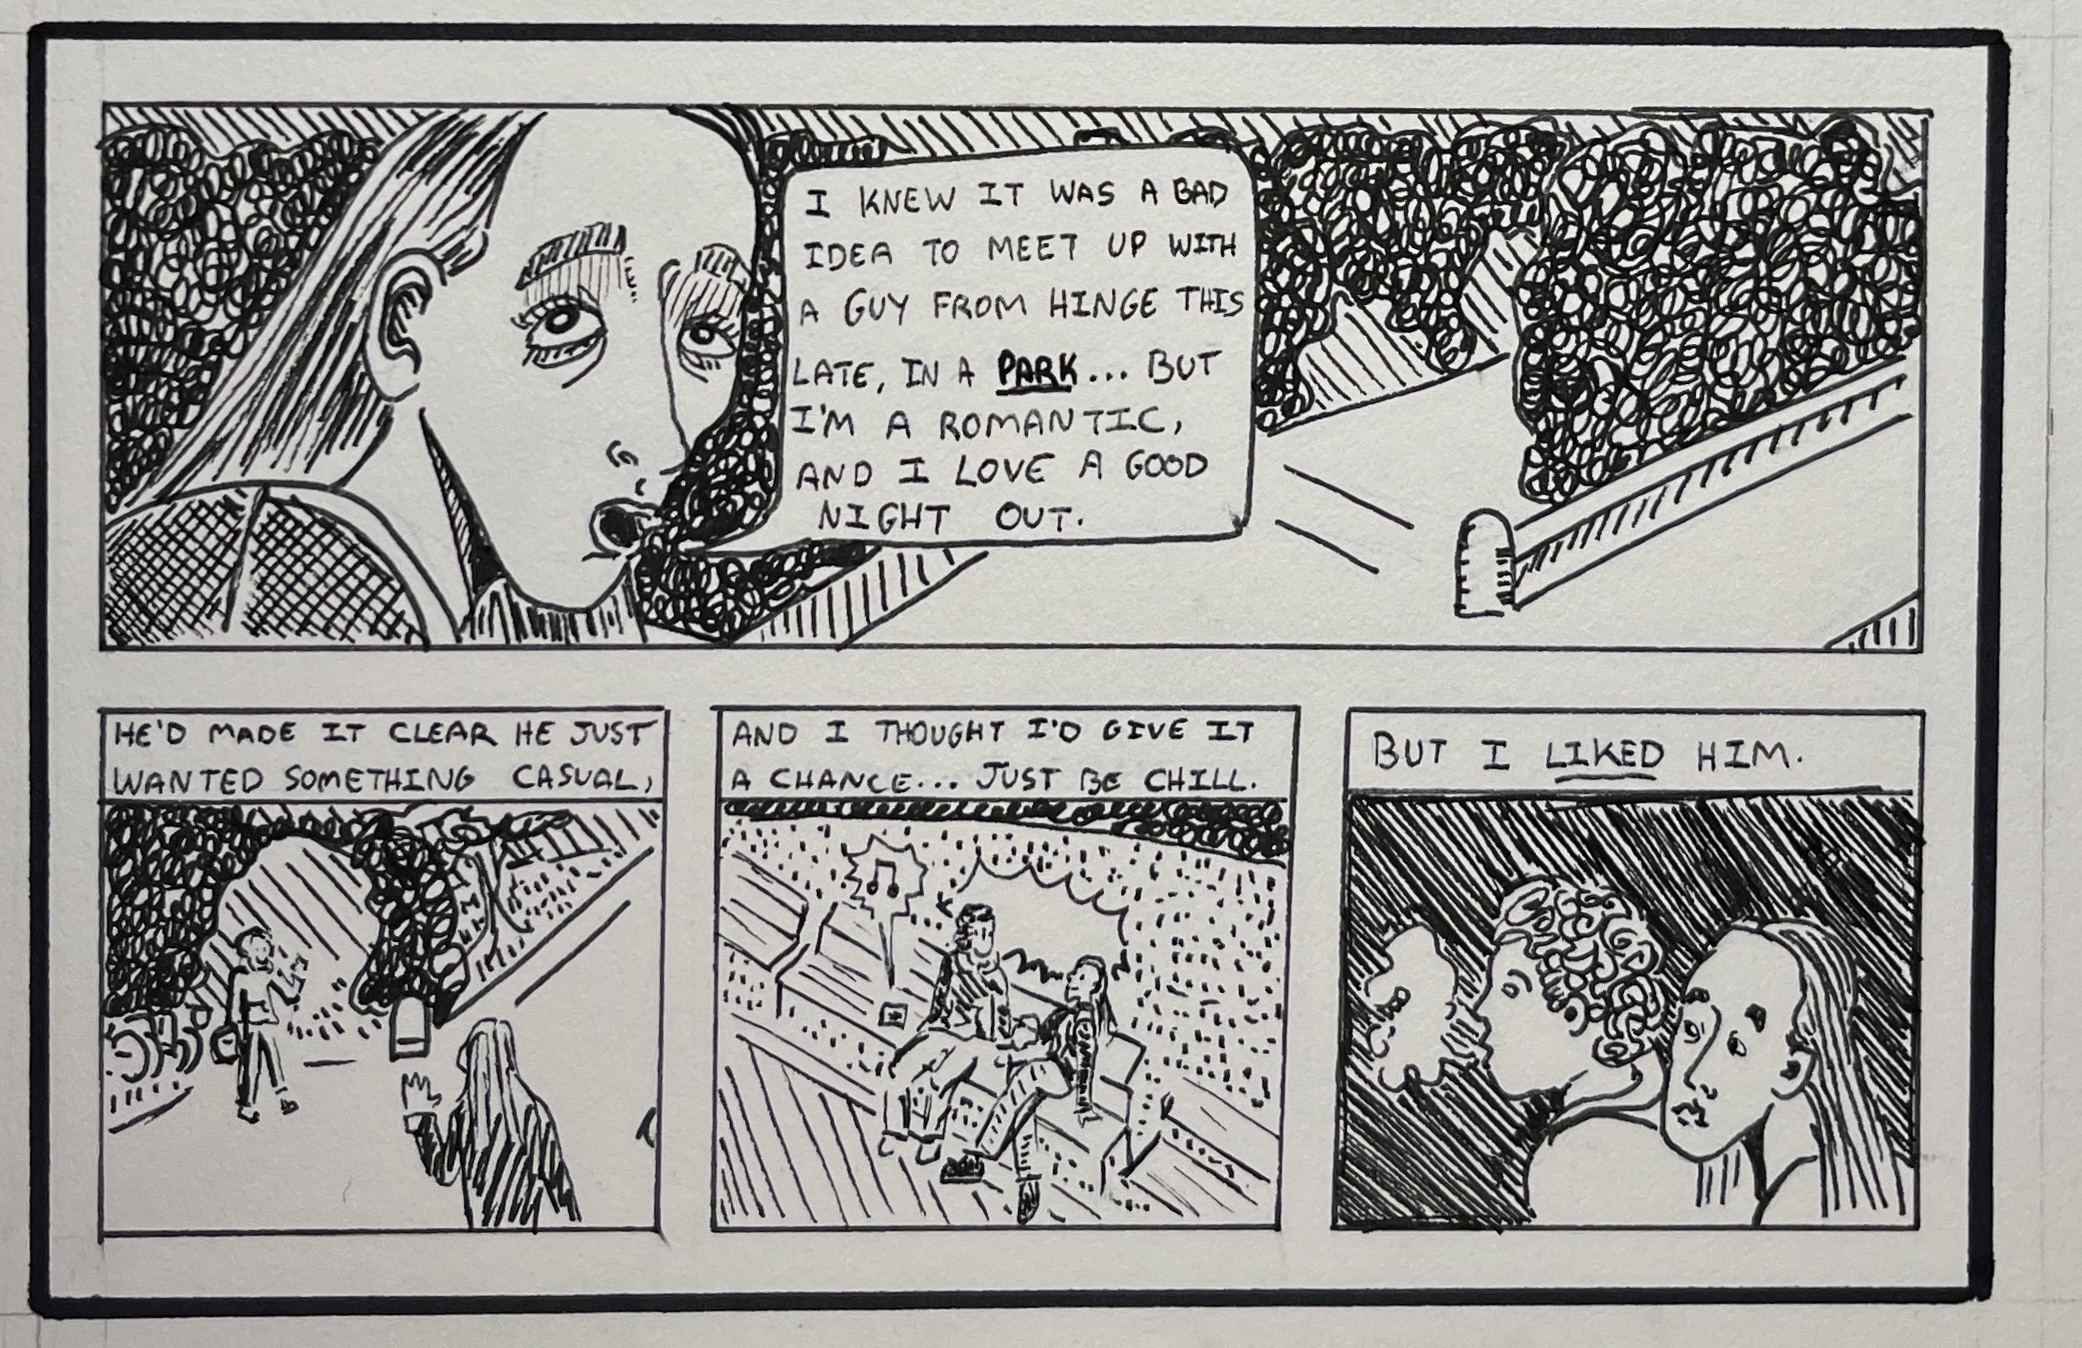 I KNEW IT WAS A BAD
IDEA TO MEET UP WITH
A GUY FROM HINGE THIS
LATE, IN A PARK... BUT
I'M A ROMANTIC,
AND I LOVE A GOOD
NIGHT OUT.
HE'D MADE IT CLEAR HE JUST
WANTED SOMETHING CASUAL,
AND I THOUGHT I'D GIVE IT
A CHANCE... JUST BE CHILL.
BUT I LIKED HIM.